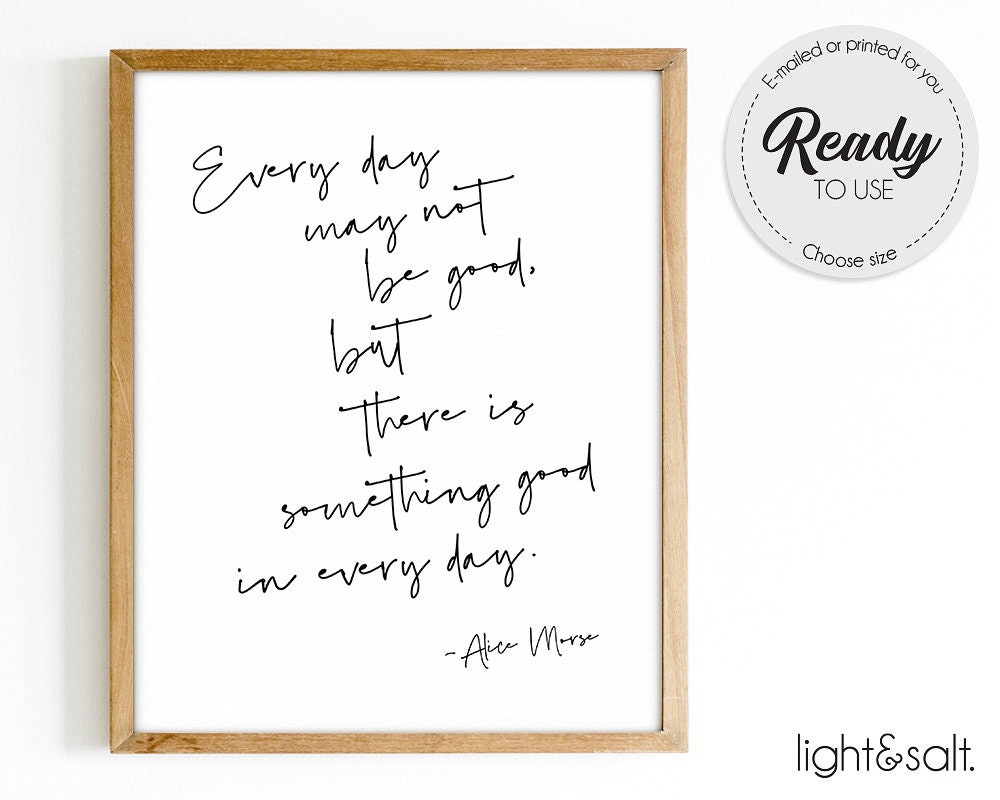 Every day
may not
be good,
but
there is
something good
in every day.
-Alice Morse
E-mailed or printed for you
Ready
TO USE
Choose size
light&salt.